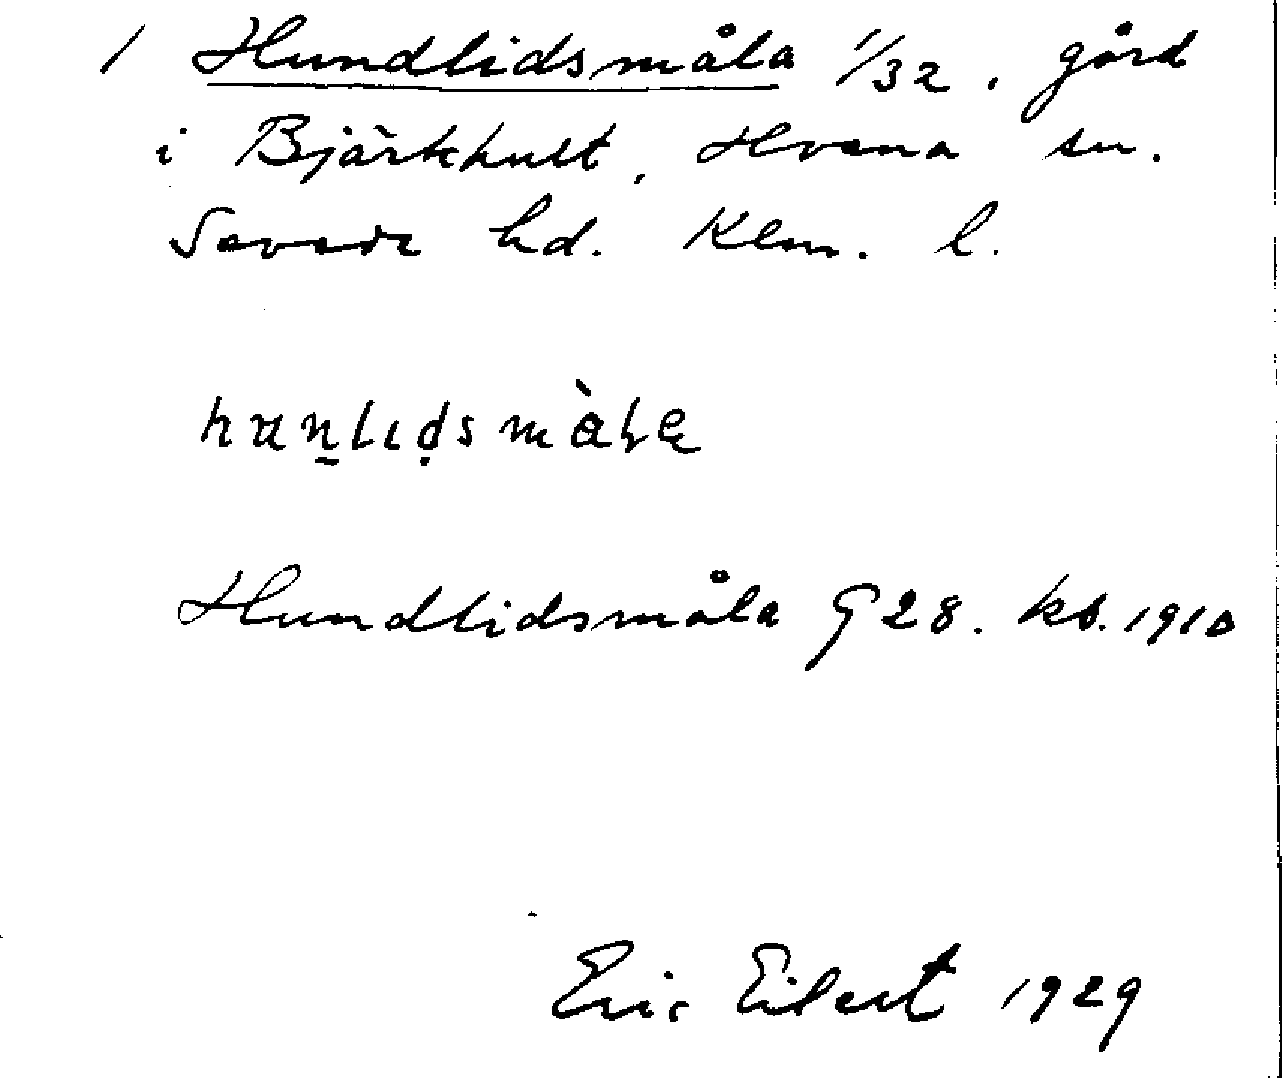 / Hundlidsmåla 1/32. gård
i Björkhult, Hvena sn.
Sevede hd. Klm. l.
hunlidsmàla
Hundlidsmåla G 28. kb. 1910
Eric Eilert 1929